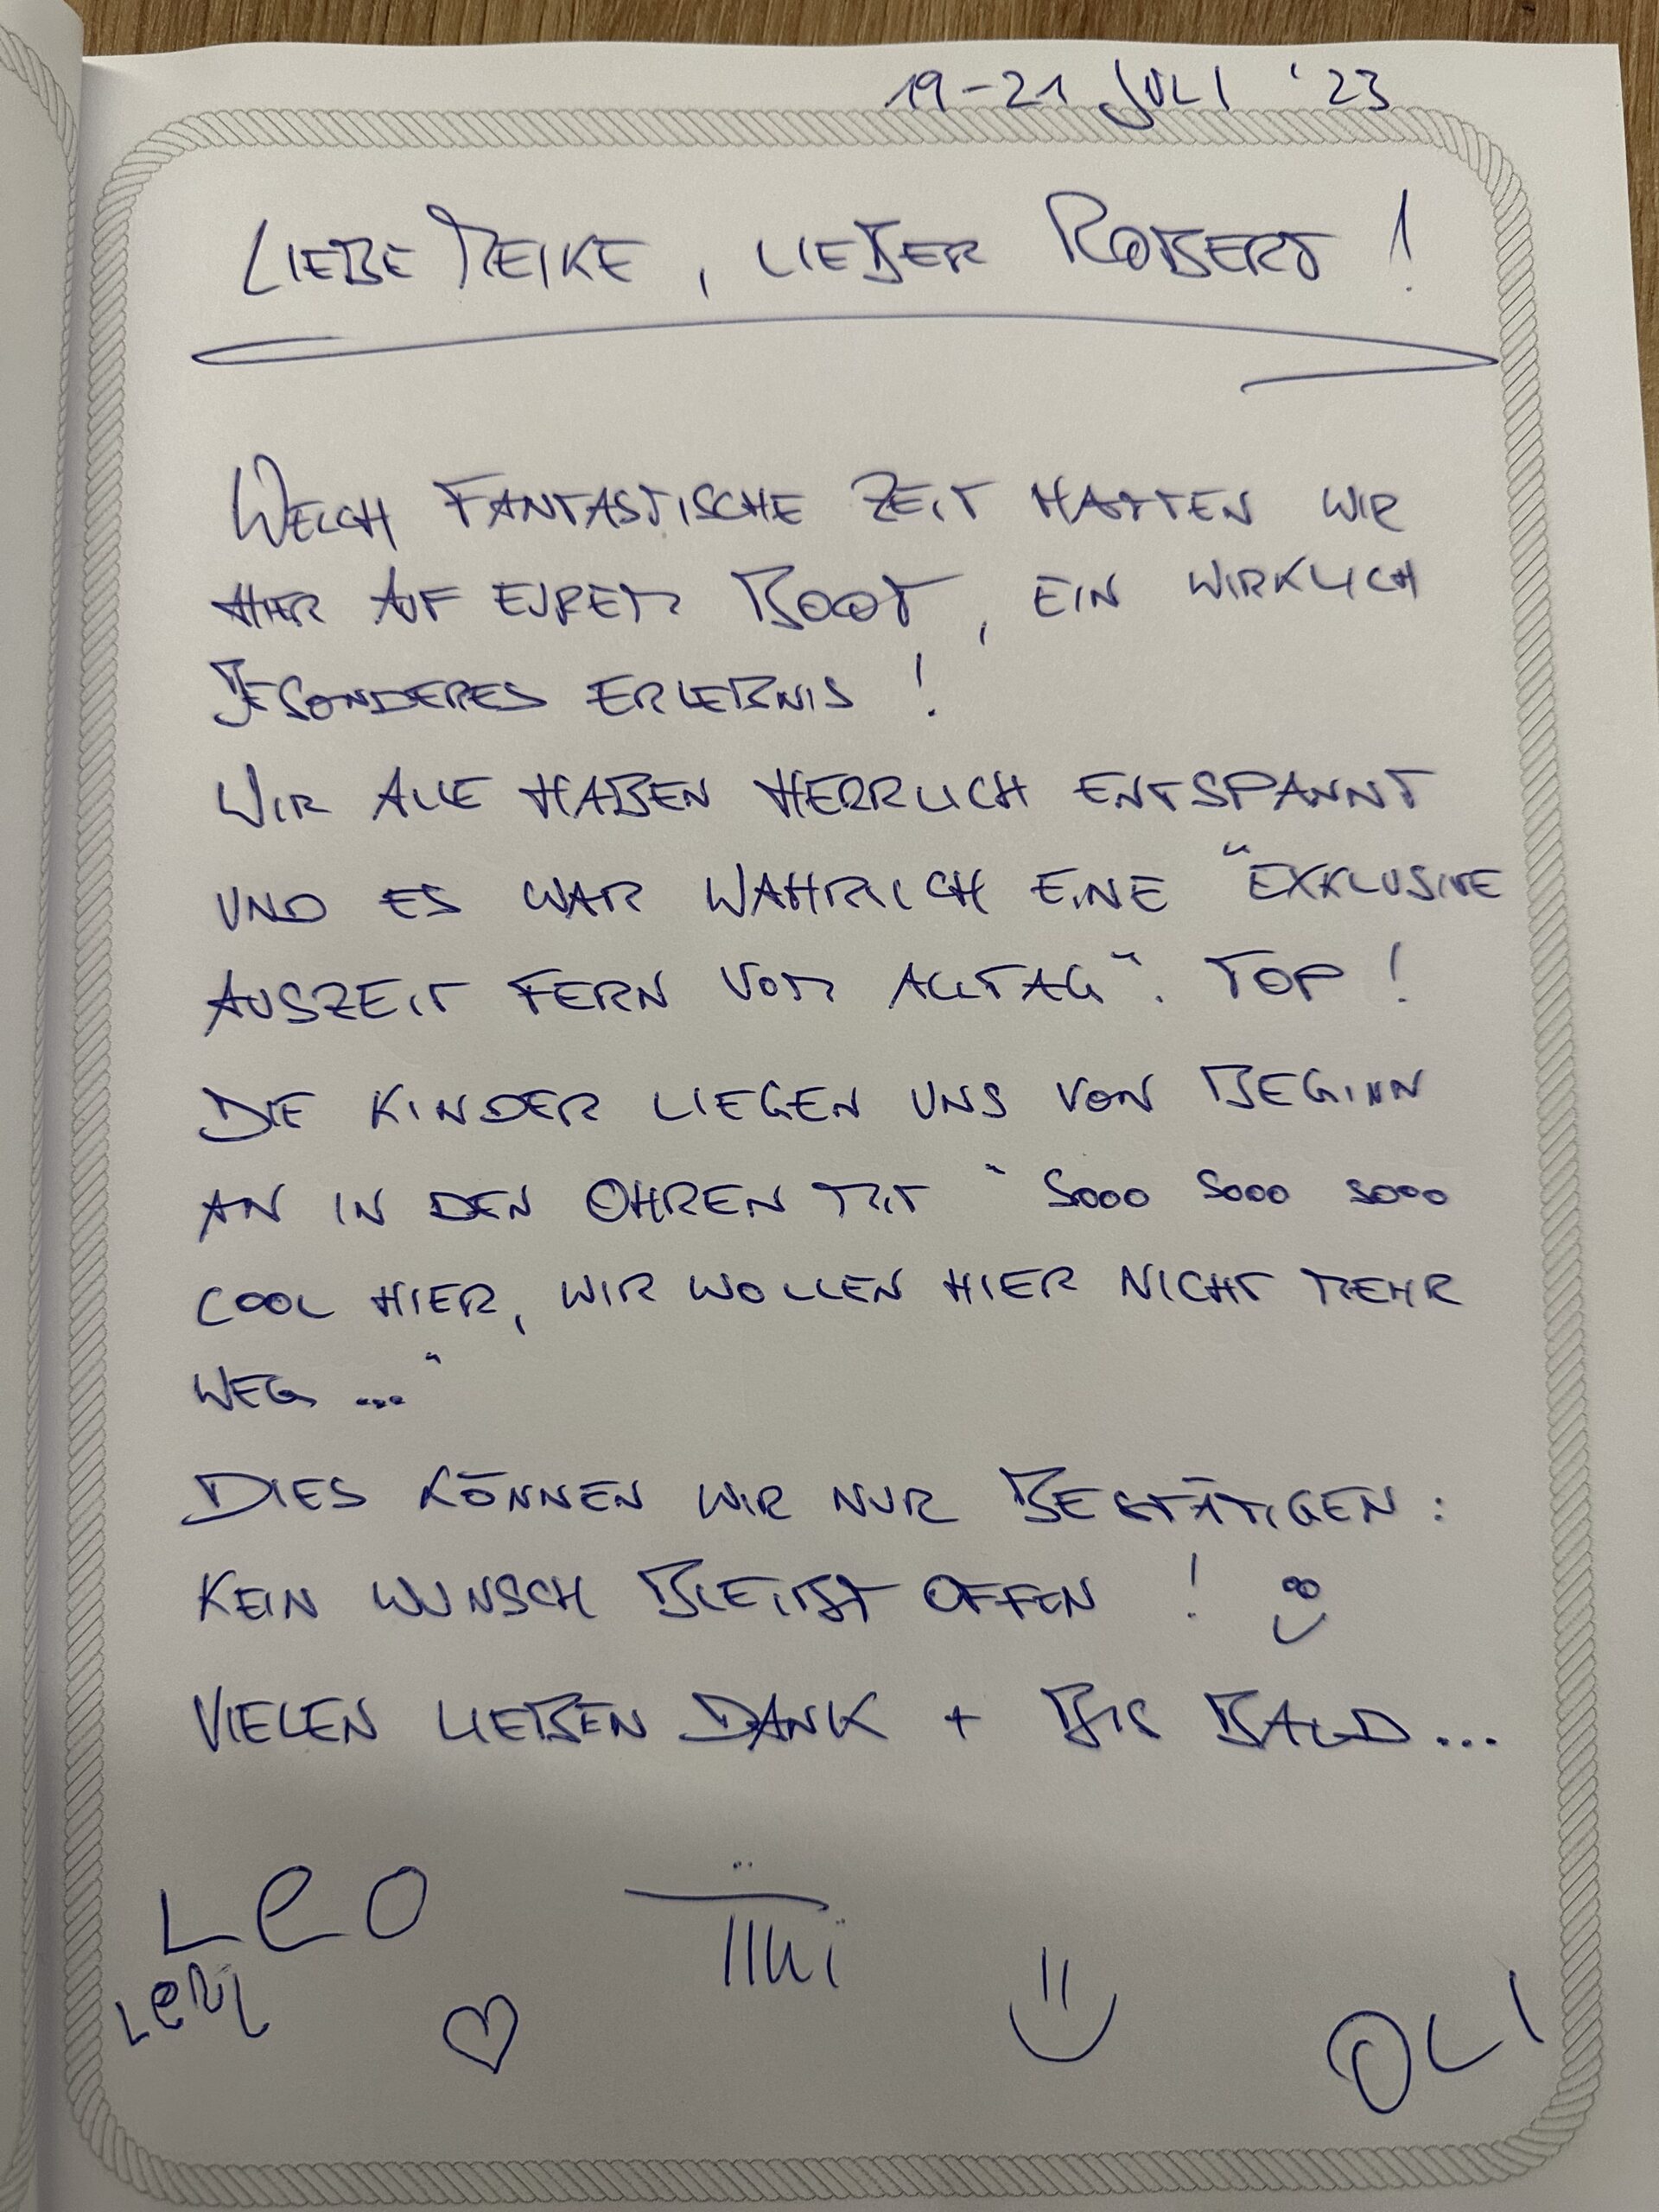 19-21 JULI '23
LIEBE MEIKE, LIEBER ROBERT!
WELCH FANTASTISCHE ZEIT HATTEN WIR
HIER AUF EUREM BOOT, EIN WIRKLICH
BESONDERES ERLEBNIS!
WIR ALLE HABEN HERRLICH ENTSPANNT
UND ES WAR WAHRLICH EINE "EXKLUSIVE
AUSZEIT FERN VOM ALLTAG". TOP!
DIE KINDER LIEGEN UNS VON BEGINN
AN IN DEN OHREN MIT "SOOO SOOO SOOO
COOL HIER, WIR WOLLEN HIER NICHT MEHR
WEG..."
DIES KÖNNEN WIR NUR BESTÄTIGEN:
KEIN WUNSCH BLEIBT OFFEN!
VIELEN LIEBEN DANK + BIS BALD...
Leo
OLI